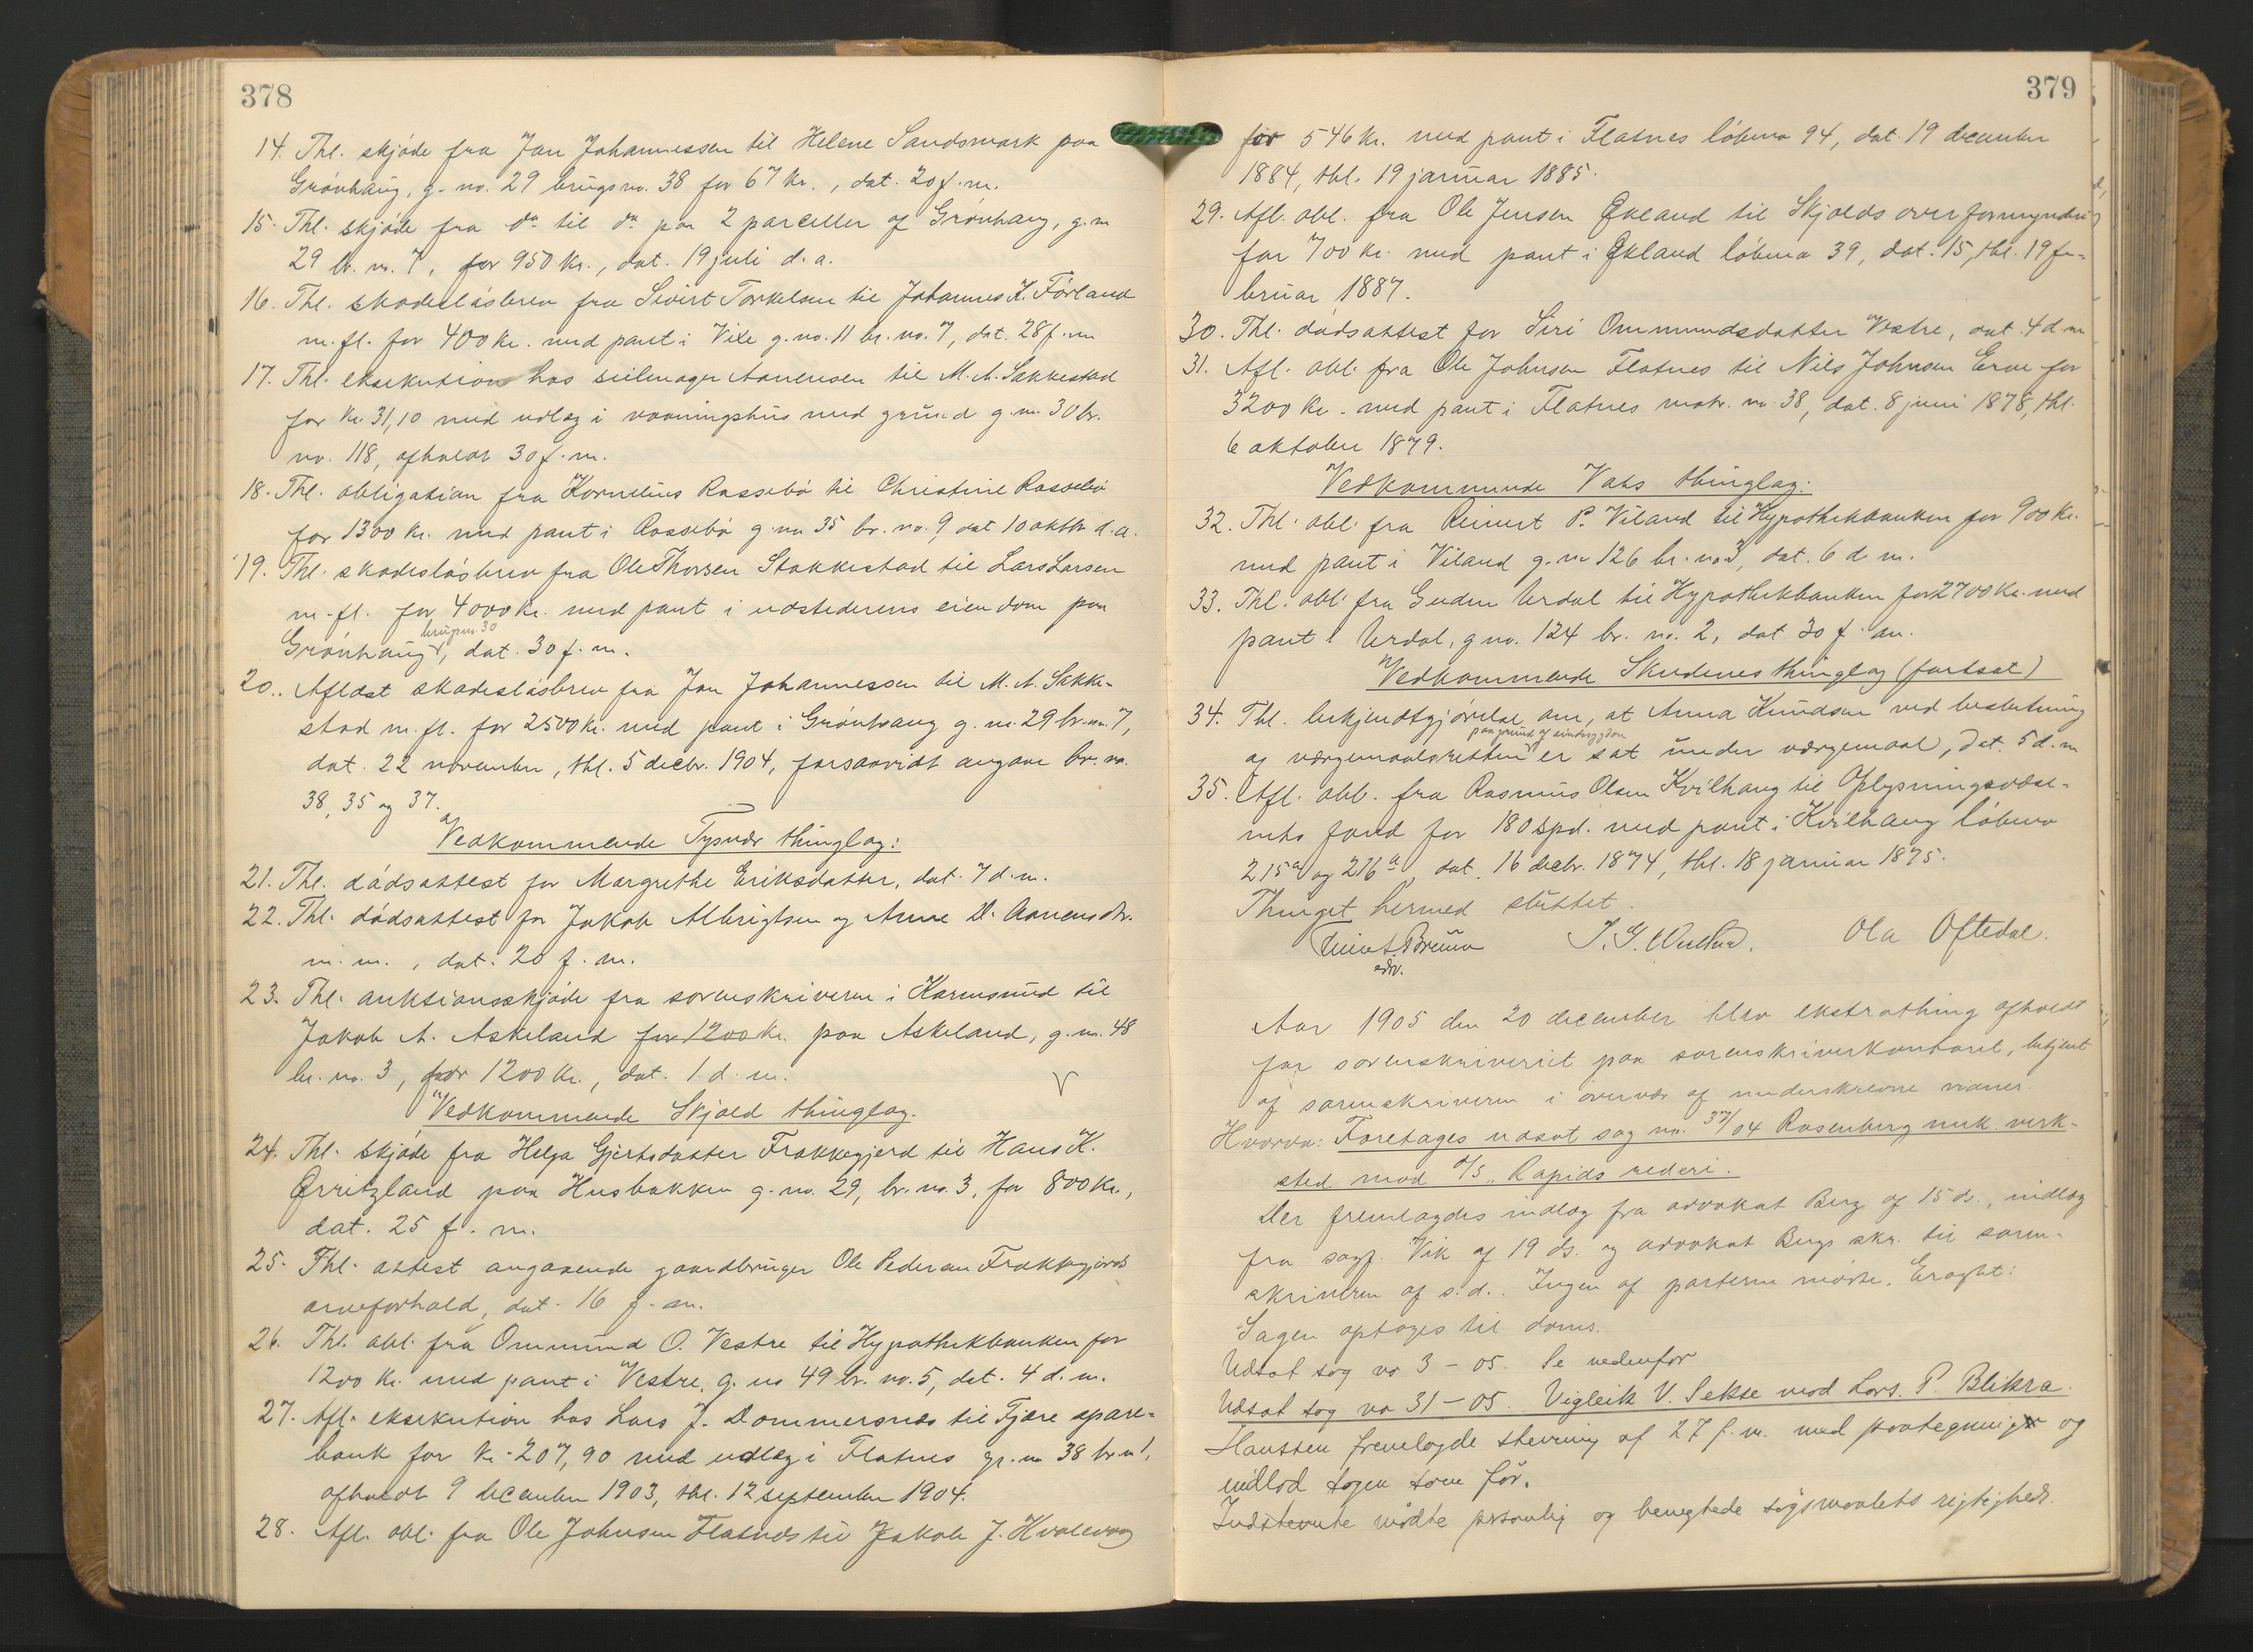 378
14. Thl. skjøde fra Jan Johannessen til Helene Sandsmark paa
Grønhaug, g. no. 29 brugsno. 38 for 67 kr., dat. 20 f. m.
15. Thl. skjøde fra do til do paa 2 parceller af Grønhaug, g. no
29 br. no. 7, for 950 kr., dat. 19 juli d. a.
16. Thl. skadesløsbrev fra Sivert Torkelsen til Johannes K. Førland
m. fl. for 400 kr. med pant i Vike g. no. 11 br. no. 7, dat. 28 f. m
17. Thl. eksekution hos seilmager Aanensen til M. A. Sakkestad
for kr. 31,10 med udlæg i vaaningshus med grund g. no. 30 br.
no. 118, afholdt 30 f. m.
18. Thl. obligation fra Kornelius Rossebø til Christine Rossebø
for 1300 kr. med pant i Rossebø g. no 35 br. no. 9, dat 10 oktbr d. a.
19. Thl. skadesløsbrev fra Ole Thorsen Stakkestad til Lars Larsen
m. fl. for 4000 kr. med pant i udstederens eiendom paa
Grønhaug brugsno. 30, dat. 30 f. m.
20. Aflæst skadesløsbrev fra Jan Johannessen til M. A. Sakke-
stad m. fl. for 2500 kr. med pant i Grønhaug g. no. 29 br. no. 7,
dat. 22 november, thl. 5 decbr. 1904, forsaavidt angaar br. no.
38, 35 og 37.
Vedkommende Tysvær thinglag:
21. Thl. dødsattest for Margrethe Eriksdatter, dat. 7 d. m.
22. Thl. dødsattest for Jakob Albrigtsen og Anne D. Aanensdtr.
m. m., dat. 20 f. m.
23. Thl. auktionsskjøde fra sorenskriveren i Karmsund til
Jakob A. Askeland for 1200 kr. paa Askeland, g. no. 48
br. no. 3, for 1200 kr., dat. 1 d. m.
Vedkommende Skjold thinglag.
24. Thl. skjøde fra Helga Gjertsdatter Frakkagjerd til Hans K.
Ørritzland paa Husbakken g. no. 29, br. no. 3, for 800 kr.,
dat. 25 f. m.
25. Thl. attest angaaende gaardbruger Ole Pedersen Frakkagjerds
arveforhold, dat. 16 f. m.
26. Thl. obl. fra Ommund O. Vestre til Hypothekbanken for
1200 kr. med pant i Vestre, g. no 49 br. no. 5, dat. 4 d. m.
27. Afl. eksekution hos Lars J. Dommersnes til Fjære spare-
bank for kr. 207,90 med udlæg i Flatnes gr. no 38 br. no 1,
afholdt 9 december 1903, thl. 12 september 1904.
28. Afl. obl. fra Ole Johnsen Flatnes til Jakob J. Hvalevaag
379
for 546 kr. med pant i Flatnes løbeno 94, dat. 19 december
1884, thl. 19 januar 1885.
29. Afl. obl. fra Ole Jensen Økland til Skjolds overformynderi
for 700 kr. med pant i Økland løbeno 39, dat. 15, thl. 19 fe-
bruar 1887.
30. Thl. dødsattest for Siri Ommundsdatter Vestre, dat. 4 d. m
31. Afl. obl. fra Ole Johnsen Flatnes til Nils Johnsen Erve for
3200 kr. med pant i Flatnes matr. no 38, dat. 8 juni 1878, thl.
6 oktober 1879.
Vedkommende Vats thinglag:
32. Thl. obl. fra Reinert P. Viland til Hypothekbanken for 900 kr.
med pant i Viland g. no 126 br. no 3, dat. 6 d m.
33. Thl. obl. fra Guden Urdal til Hypothekbanken for 2700 kr. med
pant i Urdal, g no. 124 br. no. 2, dat 30 f. m.
Vedkommende Skudenes thinglag (fortsat)
34. Thl. bekjendtgjørelse om, at Anna Knudsen ved beslutning
af værgemaalsretten paa grund af sindssygdom er sat under værgemaal, dat. 5 d. m
35. Afl. obl. fra Rasmus Olsen Kvilhaug til Oplysningsvæse-
nets fond for 180 spd. med pant i Kvilhaug løbeno
215a og 216a, dat. 16 decbr. 1874, thl. 18 januar 1875.
Thinget hermed sluttet.
Bruun
edv.
Ola Oftedal.
Aar 1905 den 20 december blev ekstrathing afholdt
for sorenskriveriet paa sorenskriverkontoret, betjent
af sorenskriveren i overvær af underskrevne vidner.
Hvorda: Foretages udsat sag no. 37/04 Rosenberg mek. verk-
sted mod A/S "Rapids rederi.
Der fremlagdes indlæg fra advokat Berg af 15 ds., indlæg
fra sagf. Vik af 19 ds. og advokat Bergs skr. til soren-
skriveren af s. d.. Ingen af parterne mødte. Eragtet:
Sagen optages til doms.
Udsat sag no 3 – 05. Se nedenfor
Udsat sag no 31 – 05. Vigleik V. Sekse mod Lars. P. Blikra.
Hanssen fremlagde stevning af 27 f. m. med paategning og
indlod sagen som før.
Indstevnte mødte personlig og benegtede søgsmaalets rigtighed.